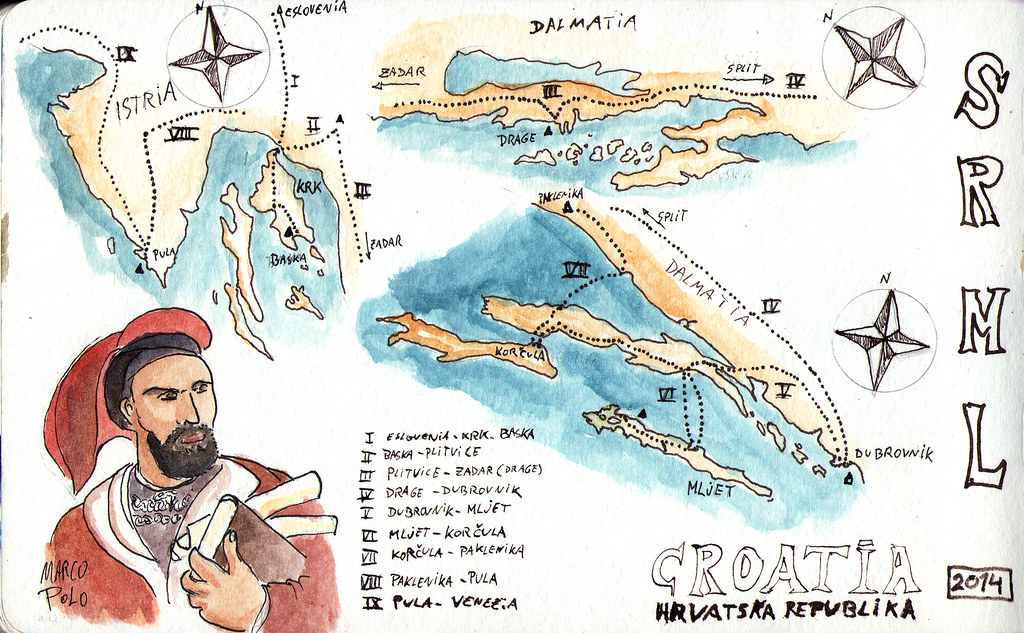 N
ESLOVENIA
IX
ISTRIA
I
VIII
II
KRK
III
ZADAR
PULA
BASKA
DALMATIA
N
ZADAR
SPLIT
IV
III
DRAGE
PAKLENIKA
SPLIT
DALMATIA
VII
IV
N
KORČULA
VI
V
DUBROVNIK
MLJET
I ESLOVENIA - KRK - BASKA
II BASKA - PLITVICE
III PLITVICE - ZADAR (DRAGE)
IV DRAGE - DUBROVNIK
V DUBROVNIK - MLJET
VI MLJET - KORČULA
VII KORČULA - PAKLENIKA
VIII PAKLENIKA - PULA
IX PULA - VENECIA
MARCO
POLO
CROATIA
HRVATSKA REPUBLIKA
SRML
2014